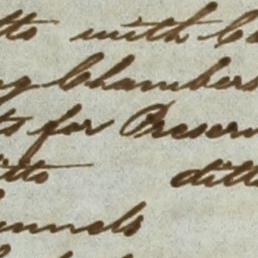 tto with Ca
ng Chambers
ts for Preserv
itto ditto
unnels